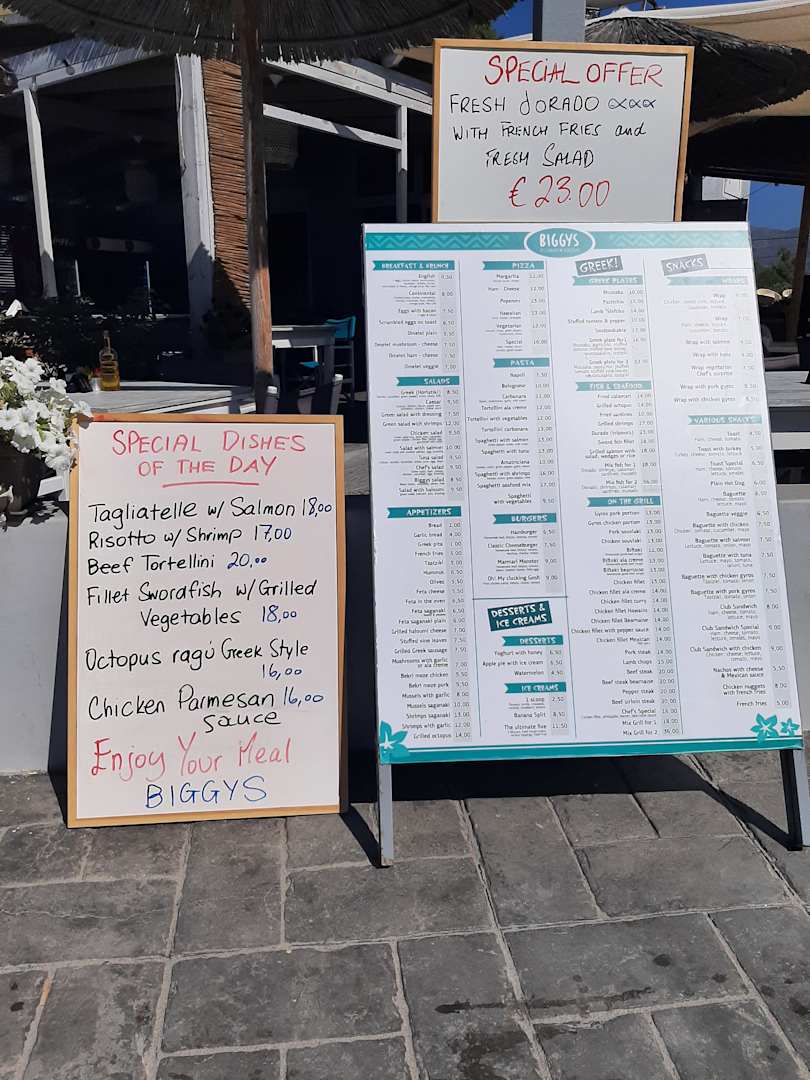 SPECIAL OFFER
FRESH dORADO ∝∝∝
WITH FRENCH FRIES and
FRESH SALAD
€ 23.00
SPECIAL DISHES
OF THE DAY
Tagliatelle w/ Salmon 18,00
Risotto w/ Shrimp 17,00
Beef Tortellini 20,00
Fillet Swordfish w/ Grilled
Vegetables 18,00
Octopus ragù Greek Style
16,00
Chicken Parmesan 16,00
sauce
Enjoy Your Meal
BIGGYS
BIGGYS
BREAKFAST & BRUNCH
English 9,50
Continental 8,00
Eggs with bacon 7,50
Scrambled eggs on toast 6,50
Omelet plain 5,50
Omelet mushroom - cheese 7,50
Omelet ham - cheese 7,50
Omelet veggie 7,00
SALADS
Greek (Horiatiki) 8,50
Caesar 9,50
Green salad with dressing 7,50
Green salad with shrimps 12,00
Chicken salad 9,50
Salad with salmon 10,00
Tuna salad 9,50
Chef's salad 9,50
Biggys salad 8,50
Salad with haloumi 9,50
APPETIZERS
Bread 1,00
Garlic bread 4,00
Greek pita 1,00
French fries 5,00
Tzatziki 5,00
Hummus 6,50
Olives 5,50
Feta cheese 5,50
Feta in the oven 6,50
Feta saganaki 6,50
Feta saganaki plain 6,00
Grilled haloumi cheese 7,00
Stuffed vine leaves 7,50
Grilled Greek sausage 7,50
Mushrooms with garlic
or ala creme 7,00
Bekri meze chicken 9,50
Bekri meze pork 9,50
Mussels with garlic 8,00
Mussels saganaki 10,00
Shrimps saganaki 13,00
Shrimps with garlic 12,00
Grilled octopus 14,00
PIZZA
Margarita 12,00
Ham - Cheese 12,00
Peperoni 13,00
Hawaiian 13,00
Vegetarian 12,00
Special 14,00
PASTA
Napoli 7,50
Bolognese 10,00
Carbonara 11,00
Tortellini ala creme 12,00
Tortellini with vegetables 12,00
Tortellini carbonara 13,00
Spaghetti with salmon 13,00
Spaghetti with tuna 13,00
Amatriciana 10,00
Spaghetti with shrimps 16,00
Spaghetti seafood mix 17,00
Spaghetti
with vegetables 9,50
BURGERS
Hamburger 6,50
Classic Cheeseburger 7,50
Marmari Monster 9,00
Oh! My clucking Gosh 9,00
DESSERTS &
ICE CREAMS
DESSERTS
Yoghurt with honey 6,50
Apple pie with ice cream 6,50
Watermelon 4,50
ICE CREAMS
1 scoop 2,50
Banana Split 8,50
The ultimate five 11,50
GREEK!
GREEK PLATES
Mousaka 10,00
Pastichio 11,00
Lamb "Kleftiko" 14,00
Stuffed tomato & pepper 10,00
Soutzoukakia
Greek plate for 1
Greek plate for 2
FISH & SEAFOOD
Fried calamari 14,00
Grilled octopus 14,00
Fried sardines 10,00
Grilled shrimps
Dorado (tsipoura)
Sword fish fillet
Grilled salmon with
salad, wedges or rice
Mix fish for 1 18,00
Mix fish for 2 36,00
ON THE GRILL
Gyros pork portion 13,00
Gyros chicken portion 13,00
Pork souvlaki 13,00
Chicken souvlaki 13,00
Bifteki
Bifteki ala creme
Bifteki bearnaise
Chicken fillet
Chicken fillet ala creme
Chicken fillet curry
Chicken fillet Hawaiin
Chicken fillet Bearnaise
Chicken fillet with pepper sauce
Chicken fillet Mexican
Pork steak
Lamb chops 15,00
Beef steak 20,00
Beef steak bearnaise 20,00
Pepper steak 20,00
Beef sirloin steak 20,00
Chef's Special
Mix Grill for 1 18,00
Mix Grill for 2 36,00
SNACKS
WRAPS
Wrap
Wrap
Wrap with salmon
Wrap with tuna
Wrap vegetarian
Chef's surprise
Wrap with pork gyros
Wrap with chicken gyros
VARIOUS SNACKS
Toast 4,50
Toast with turkey 5,50
Toast Special 6,50
Plain Hot Dog 6,00
Baguette 6,50
Baguette veggie 6,50
Baguette with chicken 7,50
Baguette with salmon 7,50
Baguette with tuna 7,50
Baguette with chicken gyros 7,50
Baguette with pork gyros 7,50
Club Sandwich 8,00
Club Sandwich Special 9,00
Club Sandwich with chicken 9,00
Nachos with cheese
& Mexican sauce 5,50
Chicken nuggets
with french fries 8,00
French fries 5,00